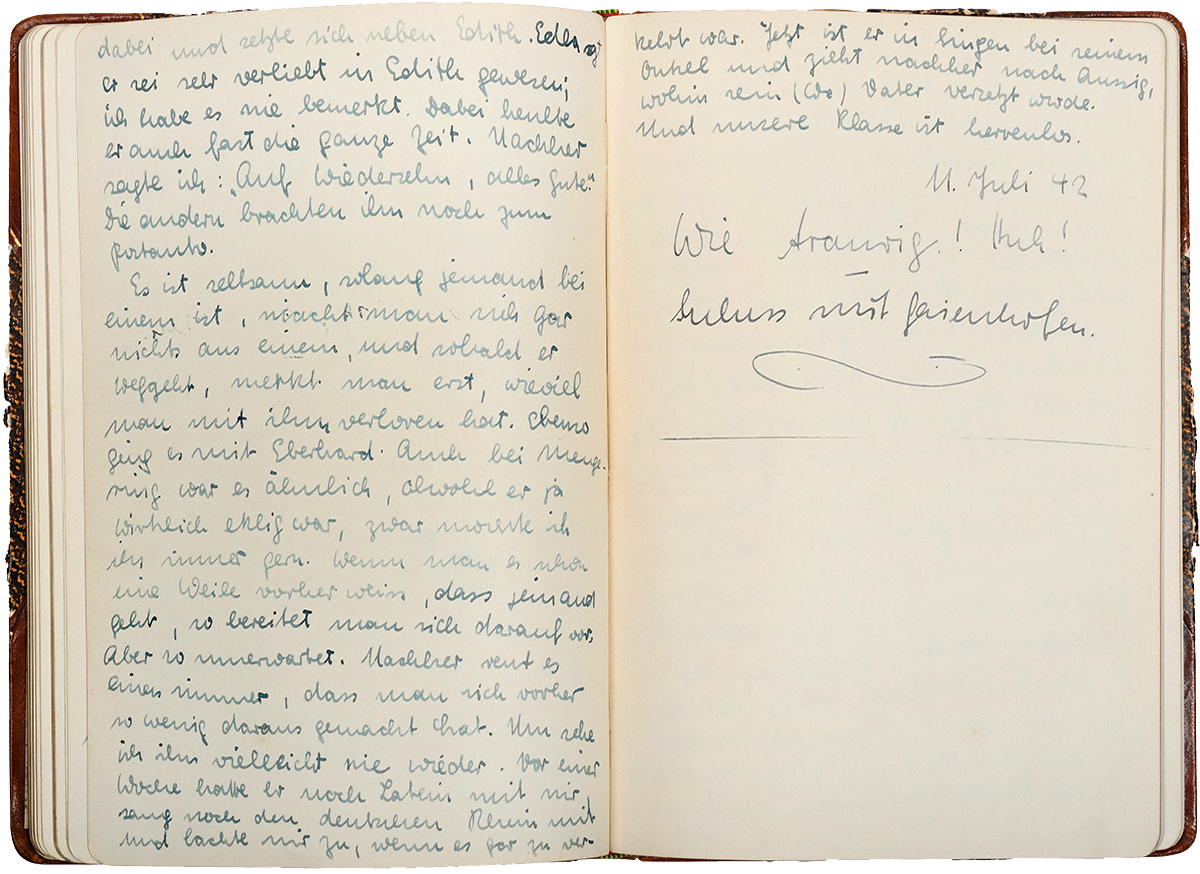 dabei und setzte sich neben Edith. Edda sagt
er sei sehr verliebt in Edith gewesen;
ich habe es nie bemerkt. Dabei heulte
er auch fast die ganze Zeit. Nachher
sagte ich: „Auf Wiedersehn, alles Gute."
Die andern brachten ihn noch zum
Postauto.
Es ist seltsam, solang jemand bei
einem ist, macht man sich gar
nichts aus einem, und sobald er
weggeht, merkt man erst, wieviel
man mit ihm verloren hat. Ebenso
ging es mit Eberhard. Auch bei Menge-
ring war es ähnlich, obwohl er ja
wirklich eklig war, zwar mochte ich
ihn immer gern. Wenn man es schon
eine Weile vorher weiss, dass jemand
geht, so bereitet man sich darauf vor.
Aber so unerwartet. Nachher reut es
einen immer, dass man sich vorher
so wenig daraus gemacht hat. Nun sehe
ich ihn vielleicht nie wieder. Vor einer
Woche hatte er noch Latein mit mir,
sang noch den deutschen Rhein mit
und lachte mir zu, wenn es gar zu ver-
kehrt war. Jetzt ist er in Singen bei seinem
Onkel und zieht nachher nach Aussig,
wohin sein (Wo) Vater versetzt wurde.
Und unsere Klasse ist herrenlos.
11. Juli 42
Wie traurig! Huh!
Schluss mit Gaienhofen.